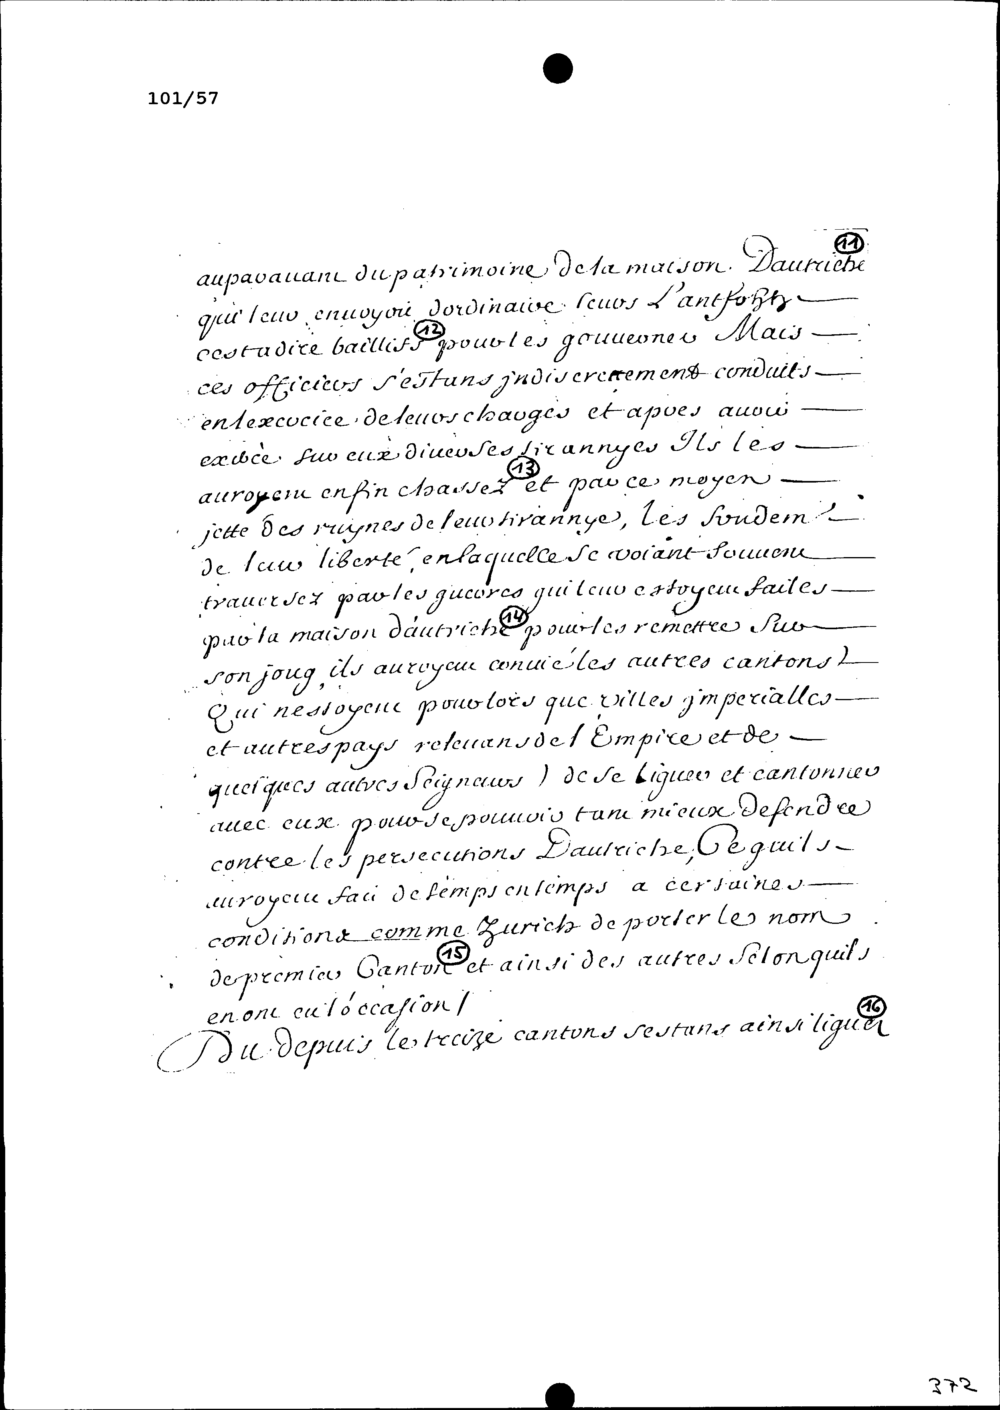 101/57
11
auparauant du patrimoine de la maison Dautriche
qui leur enuoyoit dordinaire leurs Lantfogtz
cest a dire baillifs 12 pour les gouuerner Mais
ces officiers s'estans jndiscrettement conduits
en lexercice de leurs charges et apres auoir
exercé sur eux diuerses tirannyes Ils les
auroyent enfin chassez 13 et par ce moyen
jetté des ruynes de leur tirannye, les fondem.t
de leur liberté, en laquelle se voiant souuent
trauersez par les guerres qui leur estoyent faites
par la maison dautriche 14 pour les remettre sur
son joug, ils auroyent conuié les autres cantons (
Qui nestoyent pour lors que villes jmperialles
et autres pays releuans de l Empire et de
quelques autres Seigneurs ) de se liguer et cantonner
auec eux pour se pouuoir tant mieux defendre
contre les persecutions Dautriche, Ce quils
auroyent fait de temps en temps a certaines
conditions comme Zurich de porter le nom
de premier Canton 15 et ainsi des autres selon quils
en ont eu l'occasion /
16
Du depuis les treize cantons sestans ainsi liguez
372